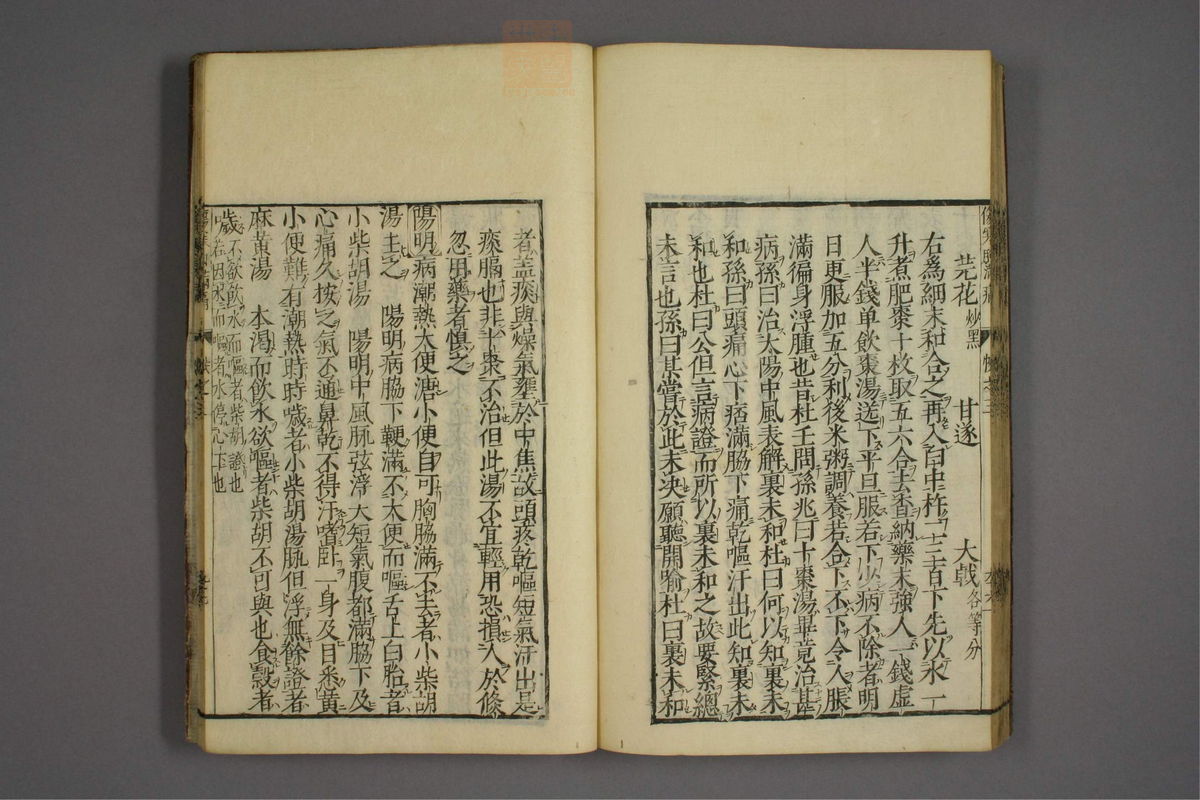 芫花炒黑 甘遂 大戟各等分
右爲細末和合之再入臼中杵一二百下先以水一
升煮肥棗十枚取五六合去香納藥末強人一錢虛
人半錢单飲棗湯送下平旦服若下少病不除者明
日更服加五分利後米粥調養若合下不下令人脹
滿徧身浮腫也昔杜壬問孫兆曰十棗湯畢竟治甚
病孫曰治太陽中風表解裏未和杜曰何以知裏未
和孫曰頭痛心下痞滿脇下痛乾嘔汗出此知裏未
和也杜曰公但言病證而所以裏未和之故要緊總
未言也孫曰某嘗於此未决願聽開喻杜曰裏未和
者盖痰與燥氣壅於中焦故頭疼乾嘔短氣汗出是
痰膈也非十棗不治但此湯不宜輕用恐損人於倏
忽用藥者慎之
陽明病潮熱大便溏小便自可胸脇滿不去者小柴胡
湯主之 陽明病脇下鞕滿不大便而嘔舌上白胎者
小柴胡湯 陽明中風脉弦浮大短氣腹都滿脇下及
心痛久按之氣不通鼻乾不得汗嗜卧一身及目悉黃
小便難有潮熱時時噦者小柴胡湯脉但浮無餘證者
麻黃湯 本渴而飲水欲嘔者柴胡不可與也食穀者
歲 不飲飲水而嘔者柴胡證也
若因水而嘔者水停心下也